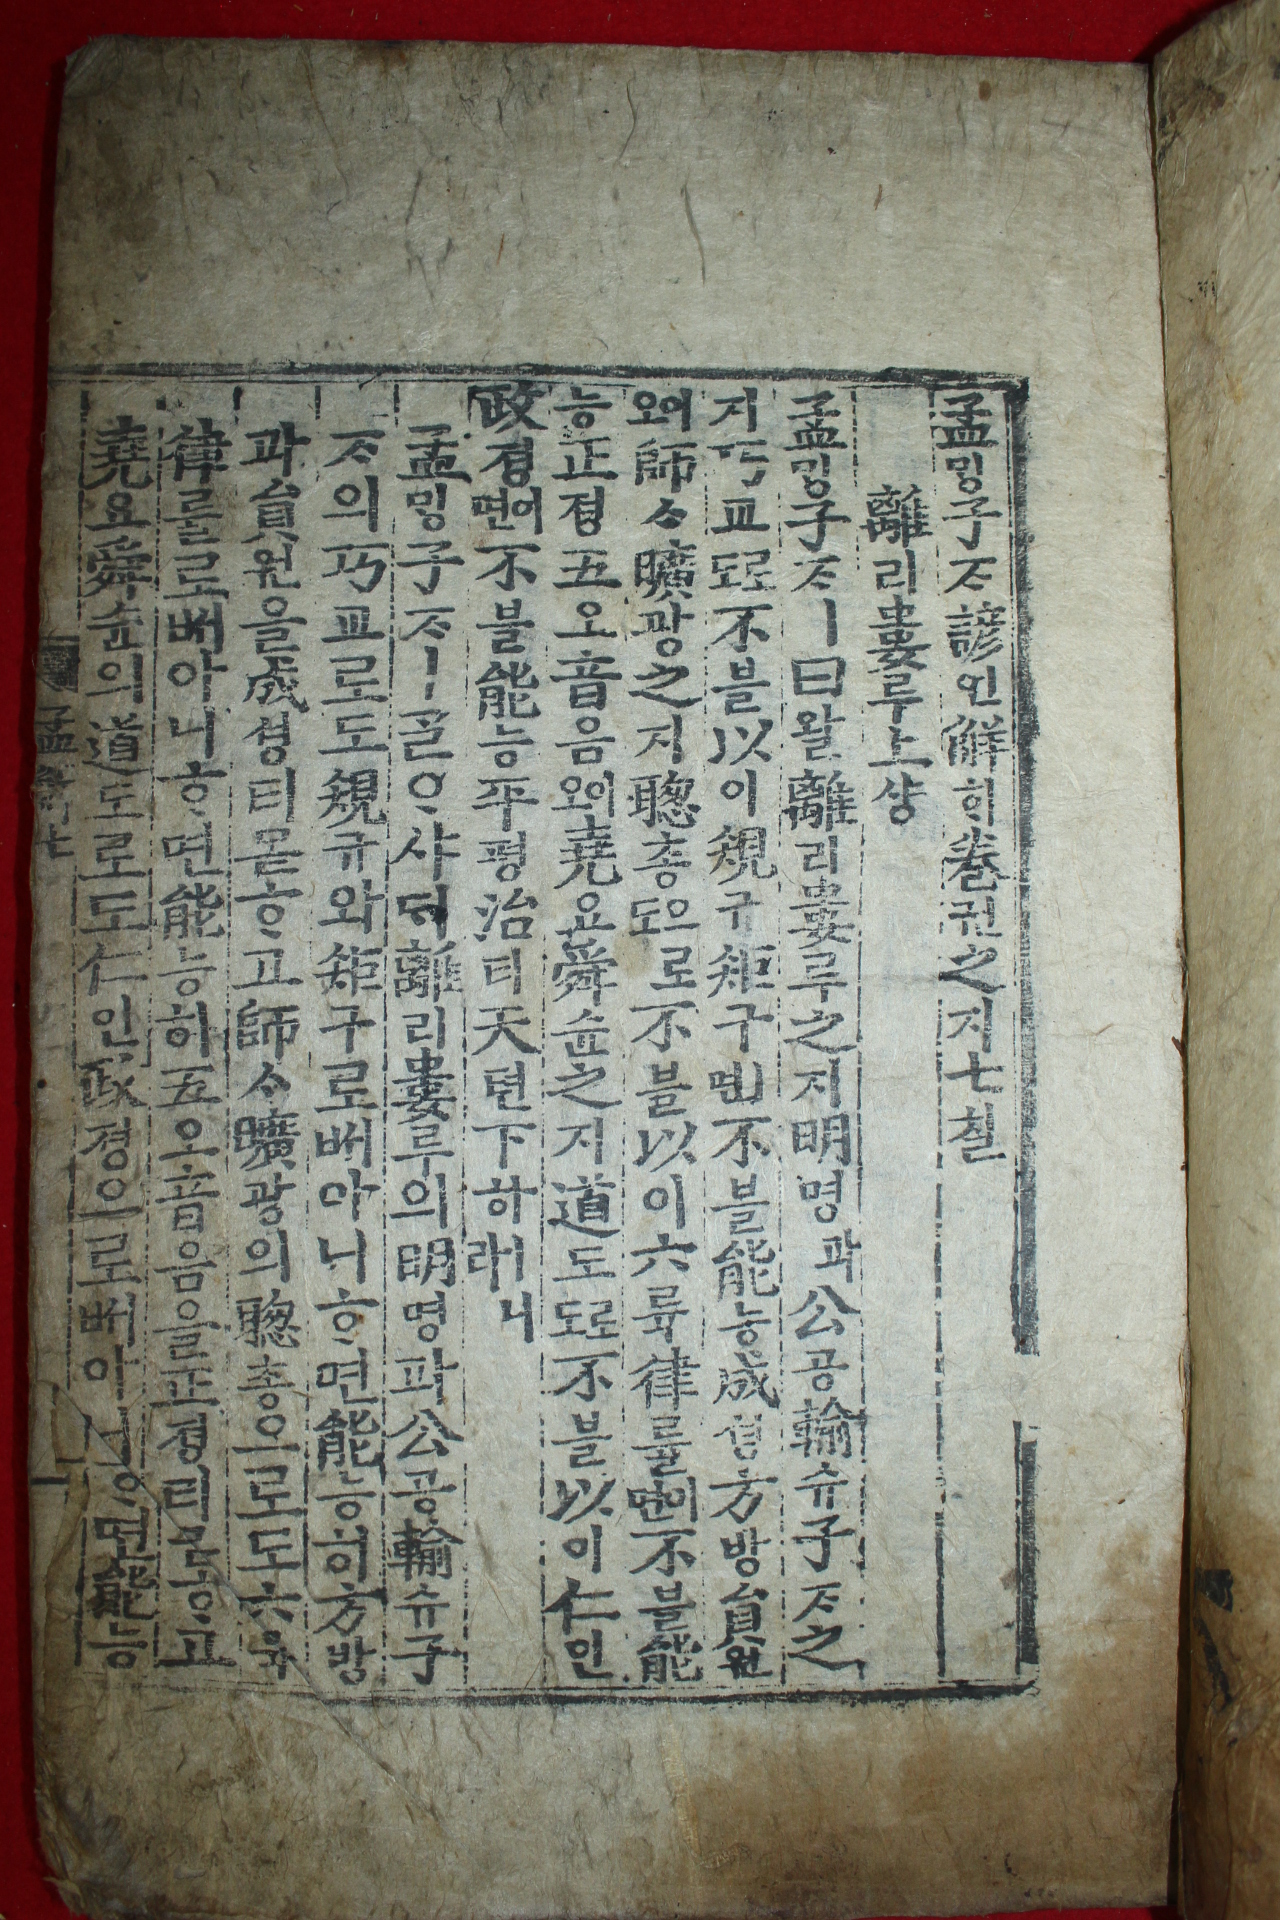 孟밍子ᄌᆞ諺언解ᄒᆡ卷권之지七칠
離리婁루上샹
孟밍子ᄌᆞㅣ曰왈離리婁루之지明명과公공輸슈子ᄌᆞ之
지巧교로도不블以이規규矩구ㅣ면不블能능成셩方방員원
이오師ᄉᆞ曠광之지聰총으로도不블以이六륙律률이면不블能
능正졍五오音음이오堯요舜슌之지道도로도不블以이仁인
政졍이면不블能능平평治티天텬下하ㅣ니라
孟밍子ᄌᆞㅣ ᄀᆞᆯᄋᆞ샤ᄃᆡ離리婁루의明명과公공輸슈子
ᄌᆞ의巧교로도規규와矩구로ᄡᅥ아니ᄒᆞ면能능히方방
과員원을成셩티몯ᄒᆞ고師ᄉᆞ曠광의聰총으로도六육
律률로ᄡᅥ아니ᄒᆞ면能능히五오音음을正졍티몯ᄒᆞ고
堯요舜슌의道도로도仁인政졍으로ᄡᅥ아니ᄒᆞ면能능